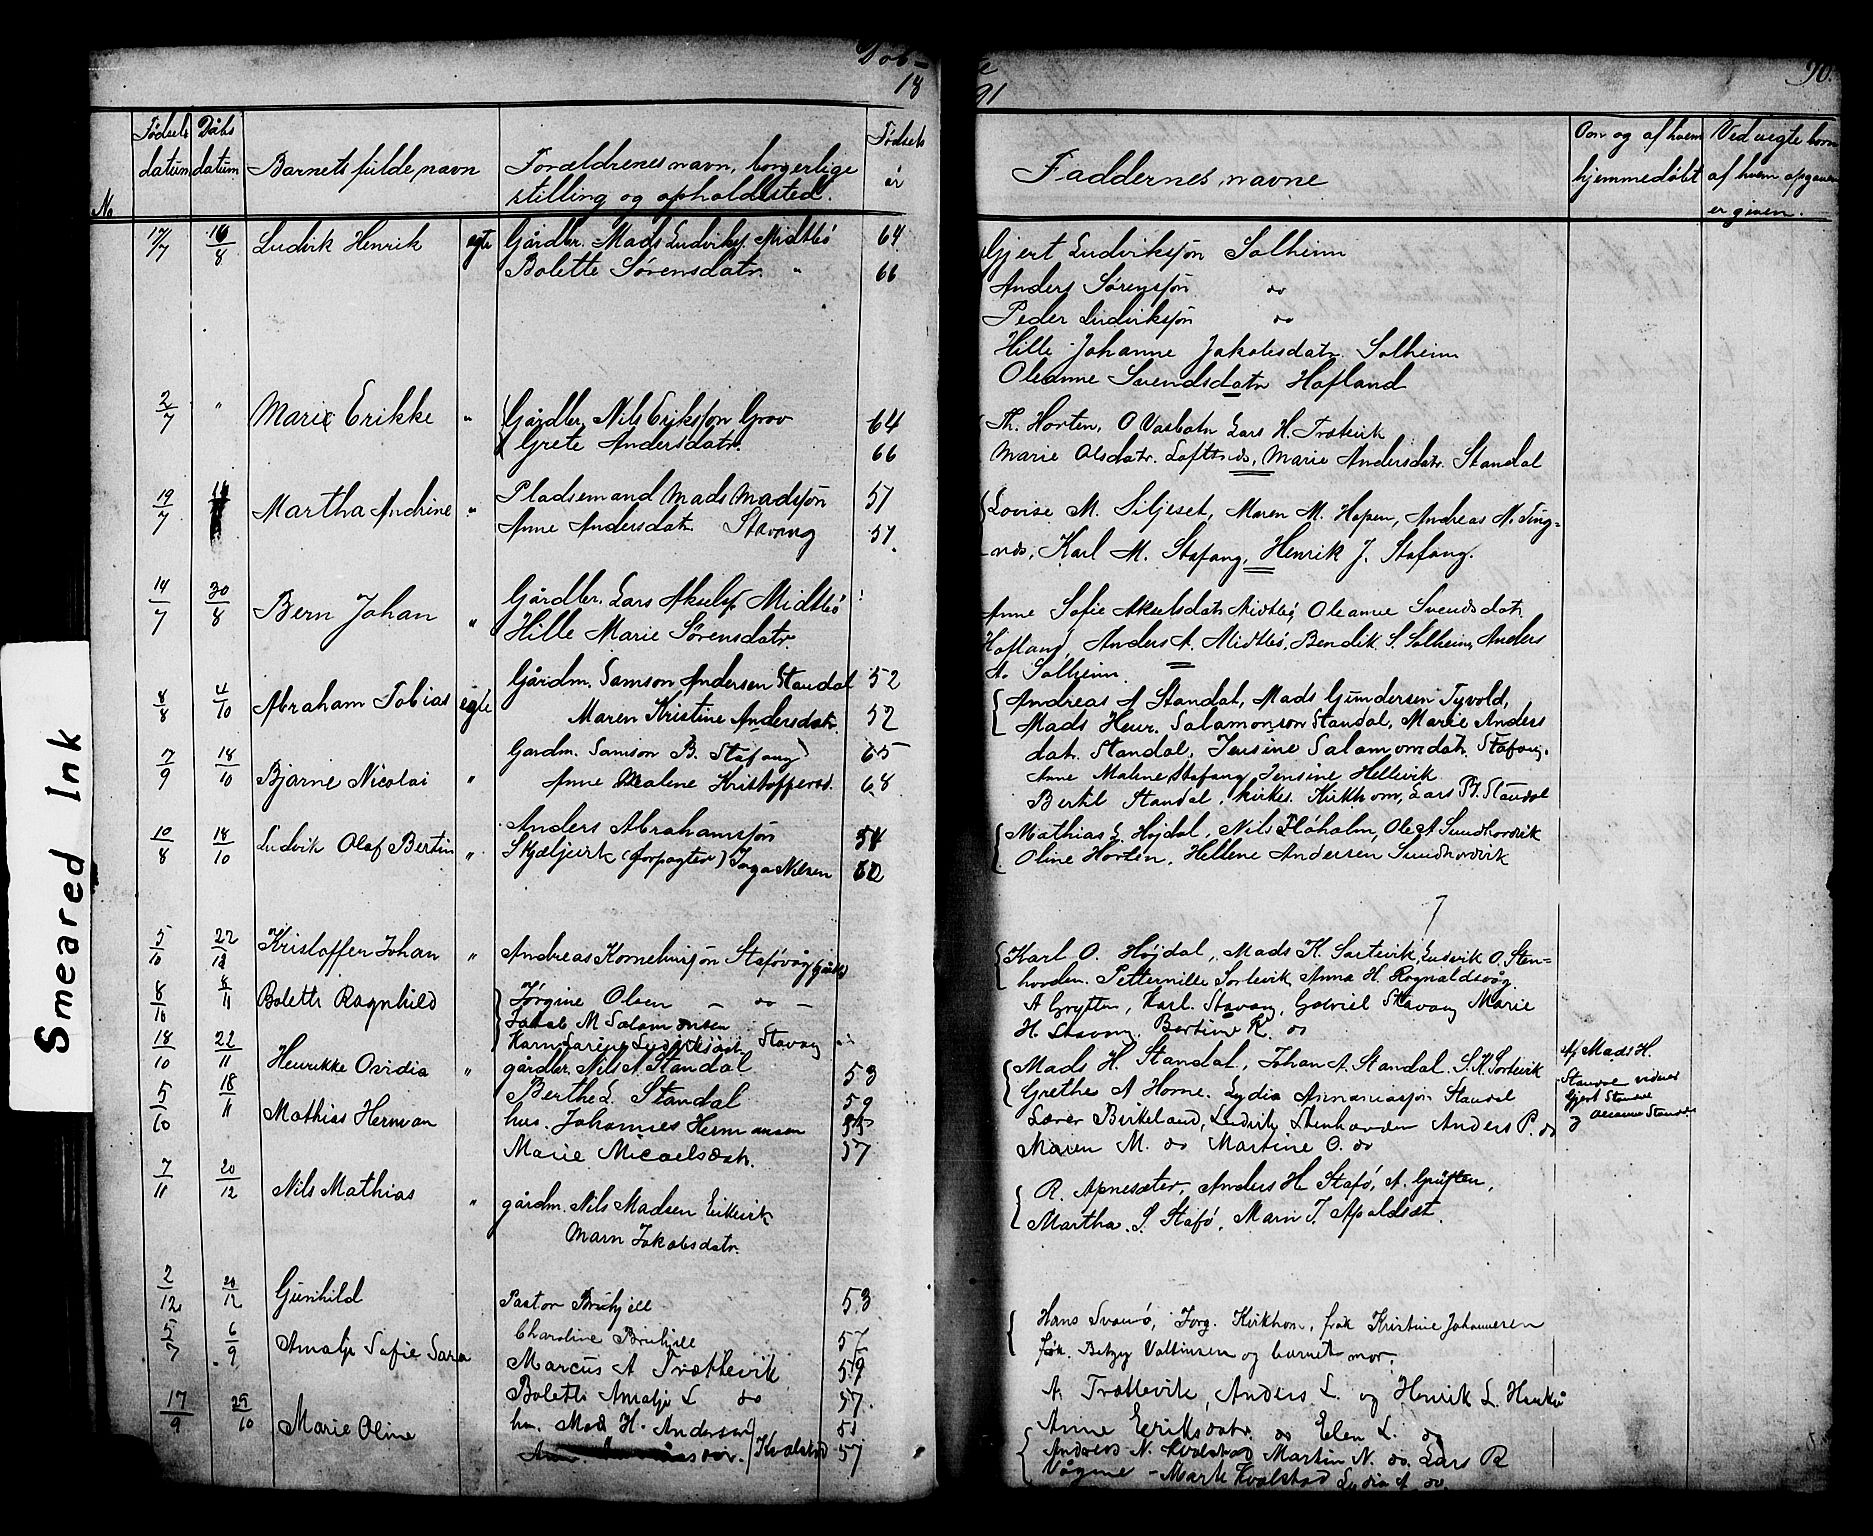 Døb-
18
e
91
90.
Fødsels
datum
Dåbs
datum
Barnets fulde navn
Forældrenes navn, borgerlige
stilling og opholdssted.
Fødsels
år
No
Faddernes navne
Om og af hvem
hjemmedøbt
Ved uegte børn
af hvem opgaven
er given.
17/7 16/8 Ludvik Henrik egte Gårdbr. Mads Ludviks. Midtbø 64
Bolette Sørensdatr. " 66
Gjert Ludviksjøn Solheim
Anders Sørensjøn do
Peder Ludviksjøn do
Hille Johanne Jakobsdatr. Solheim
Oleanne Svendsdatr Hofland
2/7 " Marie Erikke " Gårdbr. Nils Eriksjøn Grov 64
Grete Andersdatr. 66
Th. Horten, O Vasbotn Lars H. Trætevik
Marie Olsdatr. Loftnes, Marie Andersdatr. Standal
19/7 Martha Andrine " Pladsemand Mads Madsjøn 51
Anne Andersdatr. Stavang 51
Lovise M. Siljeset, Maren M. Hopen, Andreas N. Ting-
nes, Karl M. Stafang, Henrik J. Stafang.
14/7 30/8 Bern Johan " Gårdbr. Lars Akself Midtbø
Hille Marie Sørensdatr.
Anne Sofie Akselsdatr Midtbø, Oleanne Svendsdatr.
Hofland, Anders A. Midtbø, Bendik S. Solheim, Anders
A. Solheim.
8/8 4/10 Abraham Tobias egte Gårdm. Samson Andersen Standal 52
Maren Kristine Andersdatr. 52
Andreas A Standal, Mads Gundersen Tyvold,
Mads Henr. Salamonson Standal, Marie Anders
dat. Standal, Jensine Salamomdatr. Stafang.
7/9 18/10 Bjarne Nicolai " Gardm. Samson B. Stafang 65
Anne Malene Kristoffersd. 68
Anne Malene Stafang Jensine Hellevik
Bertil Standal, kirkes. Kirkhom, Lars B. Standal
10/8 18/10 Ludvik Olaf Bertin " Anders Abrahamsjøn
Skjæljevik (forpagter) Inga Nilsen
Mathias L. Højdal, Nils Høholm, Ole A Sundhordvik
Oline Horten, Hellene Andersen Sundhordvik
5/10 22/11 Kristoffer Johan " Andreas Korneliusjøn Stafovåg
Jørgine Olsen - do -
Karl O. Højdal, Mads K. Sortevik, Ludvik O. Sten-
hovden. Petternille Sortevik Anna H. Rognaldsvåg
8/10 8/11 Bolette Ragnhild
Jakob M Salamonsen
Stavang
A Grytten, Karl. Stavang, Gabriel Stavang Marie
H. Stavang. Bertine R. do
18/10 22/11 Henrikke Ovidia " gårdbr. Nils A. Standal 53
Berthe L. Standal 59
Mads H. Standal, Johan A. Standal. S. K. Sortevik
Grethe A Horne. Lydia Annaniasjøn Standal
Af Mads H.
Standal vidner
Gjert Standal
Oleanne Standal
5/10 18/11 Mathias Herman hus. Johannes Hermansen
Marie Micaelsdatr. 57
Lærer Birkeland, Ludvik Stenhovden Anders P. do
Maren M. do Martine O. do
7/11 20/12 Nils Mathias " gårdm. Nils Madsen Eikevik
Marn Jakobsdatr.
R. Apnesæter, Anders H Stafø, A. Grytten,
Martha. S. Stafø, Marn J. Apaldsæt.
2/12 20/12 Gunhild Pastor Bruhjell 53
Charoline Bruhjell 57
Hans Svanø, Jørg. Kirkhom, frøk Kristine Johannesen
frøk. Betzy Valtinsen og barnet mor.
5/7 6/9 Amalje Sofie Sara Marcus A Trættevik 59
Bolette Amalje L do 57
A. Trættevik, Anders L. og Henrik L.
Anne Eriksdatr. do Elen L. do
17/9 25/10 Marie Oline hm. Mad H. Andersen Kvalstad 51
57
Andreas N. Kvalstad Martin N. do. Lars R
Vågene - Marte Kvalstad Lydia A. do.
Smeared Ink